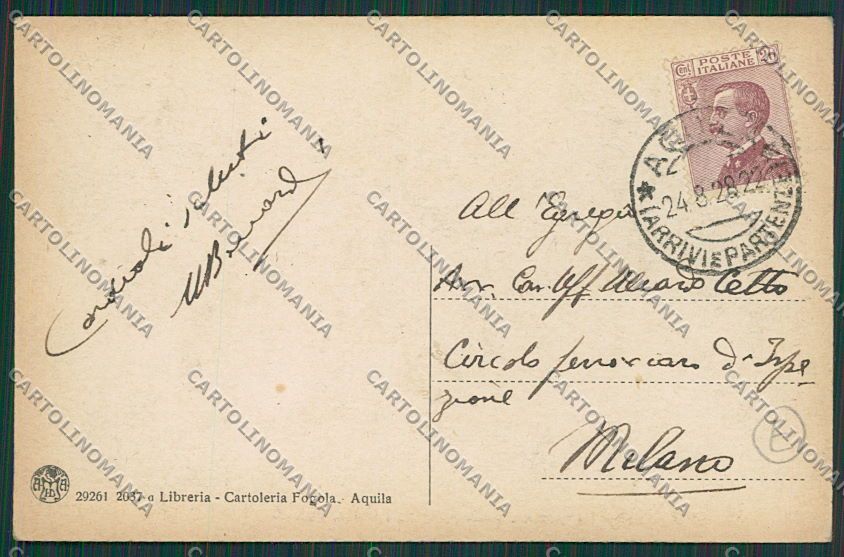 Cordiali saluti
All'Egregio
Avv. Cav. Uff. Alvaro Cetto
Circolo ferroviario d'Ispe
zione
Milano
POSTE
ITALIANE
Cent. 20
24.8.28.22
(ARRIVI E PARTENZE)
29261 2037 a Libreria - Cartoleria Fogola - Aquila
CARTOLINOMANIA